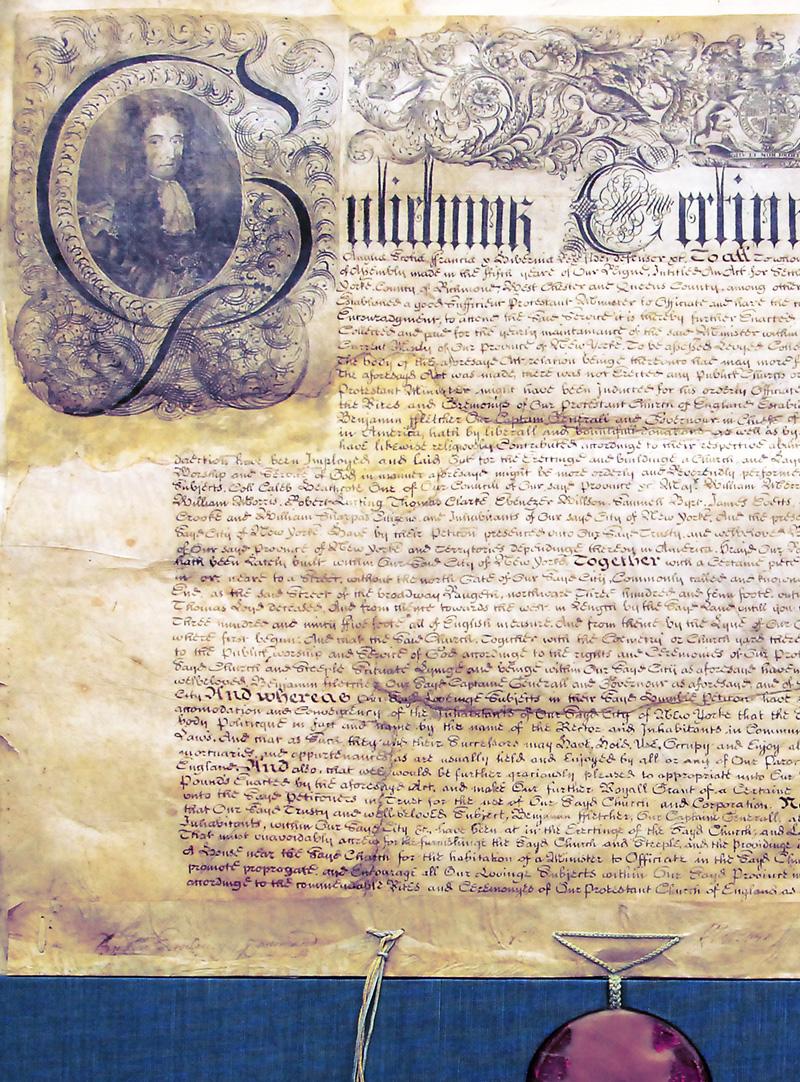 Gulielmus Tertius
Angliae Scotiae Franciae & Hiberniae Rex fidei defensor &c. To all To whom
of Assembly made in the fifth yeare of Our Reigne, Intitled An Act for Settl
Yorke County of Richmond, West Chester and Queens County, among other
Established a good Sufficient Protestant Minister to Officiate and have the
Encouradgment, to attend the Said Service it is thereby further Enacted
Collected and paid for the yearly maintainance of the said Minister within
Current Money of Our Province of New Yorke To be assessed Levyed Collec
The body of the aforesayd Act relation being thereunto had may more f
The aforesayd Act was made, there was not Erected any publick Church or
Protestant Minister might have been inducted for his orderly Officiat
the Rites and Ceremonys of Our Protestant Church of England Establi
Benjamin ffletcher Our Captain Generall and Governour in Chiefe of
in America, hath by liberall and bountifull as well as by
have likewise religiously Contributed accordinge to their respective abil
direction have been Imployed and Laid Out for the Erectinge and buildinge a Church, and Lay
Worship and Service of God in manner aforesayd might be more orderly and Reverendly performe
Subjects, Coll Caleb Heathcote One of Our Councill of Our sayd Province & Majr William Merre
William Morris, Robert Lurting Thomas Clarke, Ebenezer Willson, Samuell Burt, James Evetts,
Crooke and William Sharpas Citizens and Inhabitants of Our sayd City of New Yorke, And the prese
Sayd City of New Yorke Have by their Petition presented unto Our Sayd Trusty, and welbeloved B
of Our sayd Province of New Yorke and Territories dependinge thereon in America, Prayd Our R
hath been Lately built within Our Said City of New Yorke, Together with a Certaine piece
in or neare to a Street, without the north Gate of Our Sayd City, Commonly called and knowne
End, as the said Street of the broadway Rangeth, northward Three hundred and Tenn foote, unt
Thomas Loyd deceased, And from thence towards the west in Length by the Sayd Lane untill you
Three hundred and ninty ffive foote all of English measure, And from thence by the Lyne of Our G
where first begunn; And that the Sayd Church, Together with the Cemetry or Church yard there
to the Publick worship and Service of God accordinge to the rights and Ceremonies of Our Prot
Sayd Church and Steeple Scituate Lyinge and beinge within Our Sayd City as aforesayd have
welbeloved, Benjamin ffletcher Our Sayd Captaine Generall and Governour as aforesayd, and of
City. And whereas Our Sayd Lovinge Subjects in their Sayd Humble Petition have
accomodation and Conveniency of the Inhabitants of Our Sayd City of New Yorke that the
body Politique in fact and name by the name of the Rector and Inhabitants in Commun
Laws. And that as Such they and their Successors may Have, Hold, Use, Occupy and Enjoy al
mortuaries, and appurtenances, as are usually held and Enjoyed by all or any of Our Paroc
England. And also, that wee would be further graciously pleased to appropriate unto Our
Pounds Enacted by the aforesayd Act, and make Our further Royall Grant of a Certaine
unto the Sayd Petitioners in Trust for the use of Our Sayd Church and Corporation.
that Our Sayd Trusty and welbeloved Subject, Benjamin ffletcher, Our Captain Generall, a
Inhabitants, within Our Sayd City &c, have been at in the Erectinge of the Sayd Church, and
That must unavoidably accrew for the furnishinge the Sayd Church and Steeple, and the Providinge
A House near the Sayd Church for the habitation of a Minister to Officiate in the Sayd Churc
promote propogate, and Encourage all Our Lovinge Subjects within Our Sayd Province
accordinge to the commendable Rites and Ceremonyes of Our Protestant Church of England as